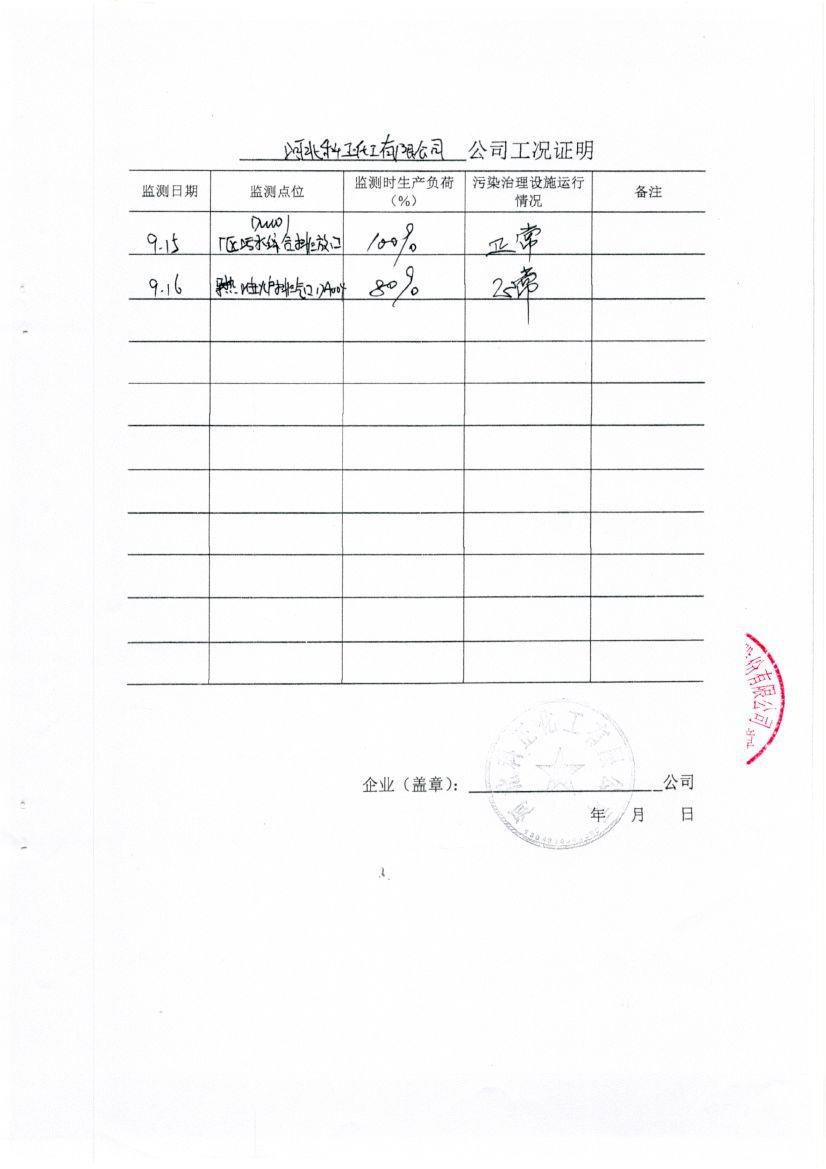 河北科正化工有限公司 公司工况证明
监测日期 监测点位 监测时生产负荷 污染治理设施运行 备注
（%） 情况
DW001
9.15 厂区污水综合排放口 100% 正常
9.16 导热油炉排气口DA004 80% 正常
股份有限公司
河北科正化工有限公司
企业（盖章）： 公司
年 月 日